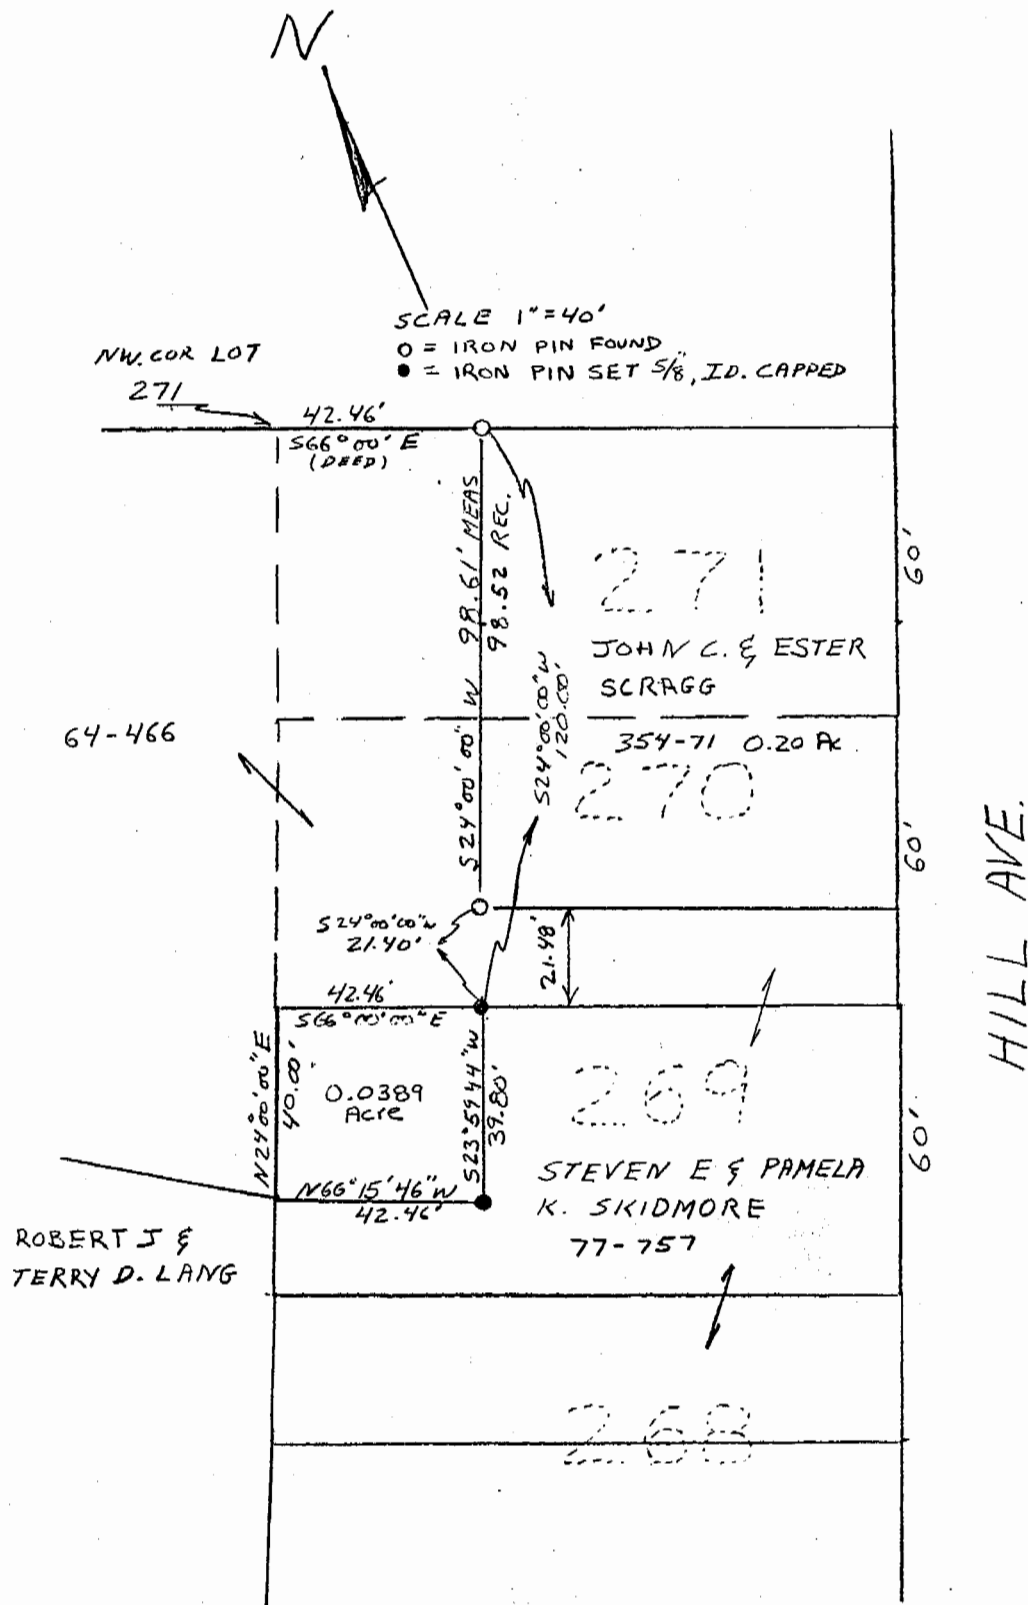 N
SCALE 1"=40'
O = IRON PIN FOUND
● = IRON PIN SET 5/8", ID. CAPPED
NW. COR LOT
271
42.46'
S66°00' E
(DEED)
98.61' MEAS
98.52 REC.
S24°00'00" W
271
JOHN C. & ESTER
SCRAGG
60'
S24°00'00"W
120.00'
64-466
354-71 0.20 Ac.
270
60'
HILL AVE.
S24°00'00"W
21.40'
21.48'
42.46'
S66°00'00"E
N24°00'00"E
40.00'
0.0389
Acre
S23°59'44"W
39.80'
269
60'
N66°15'46"W
42.46'
STEVEN E & PAMELA
K. SKIDMORE
77-757
ROBERT J &
TERRY D. LANG
268